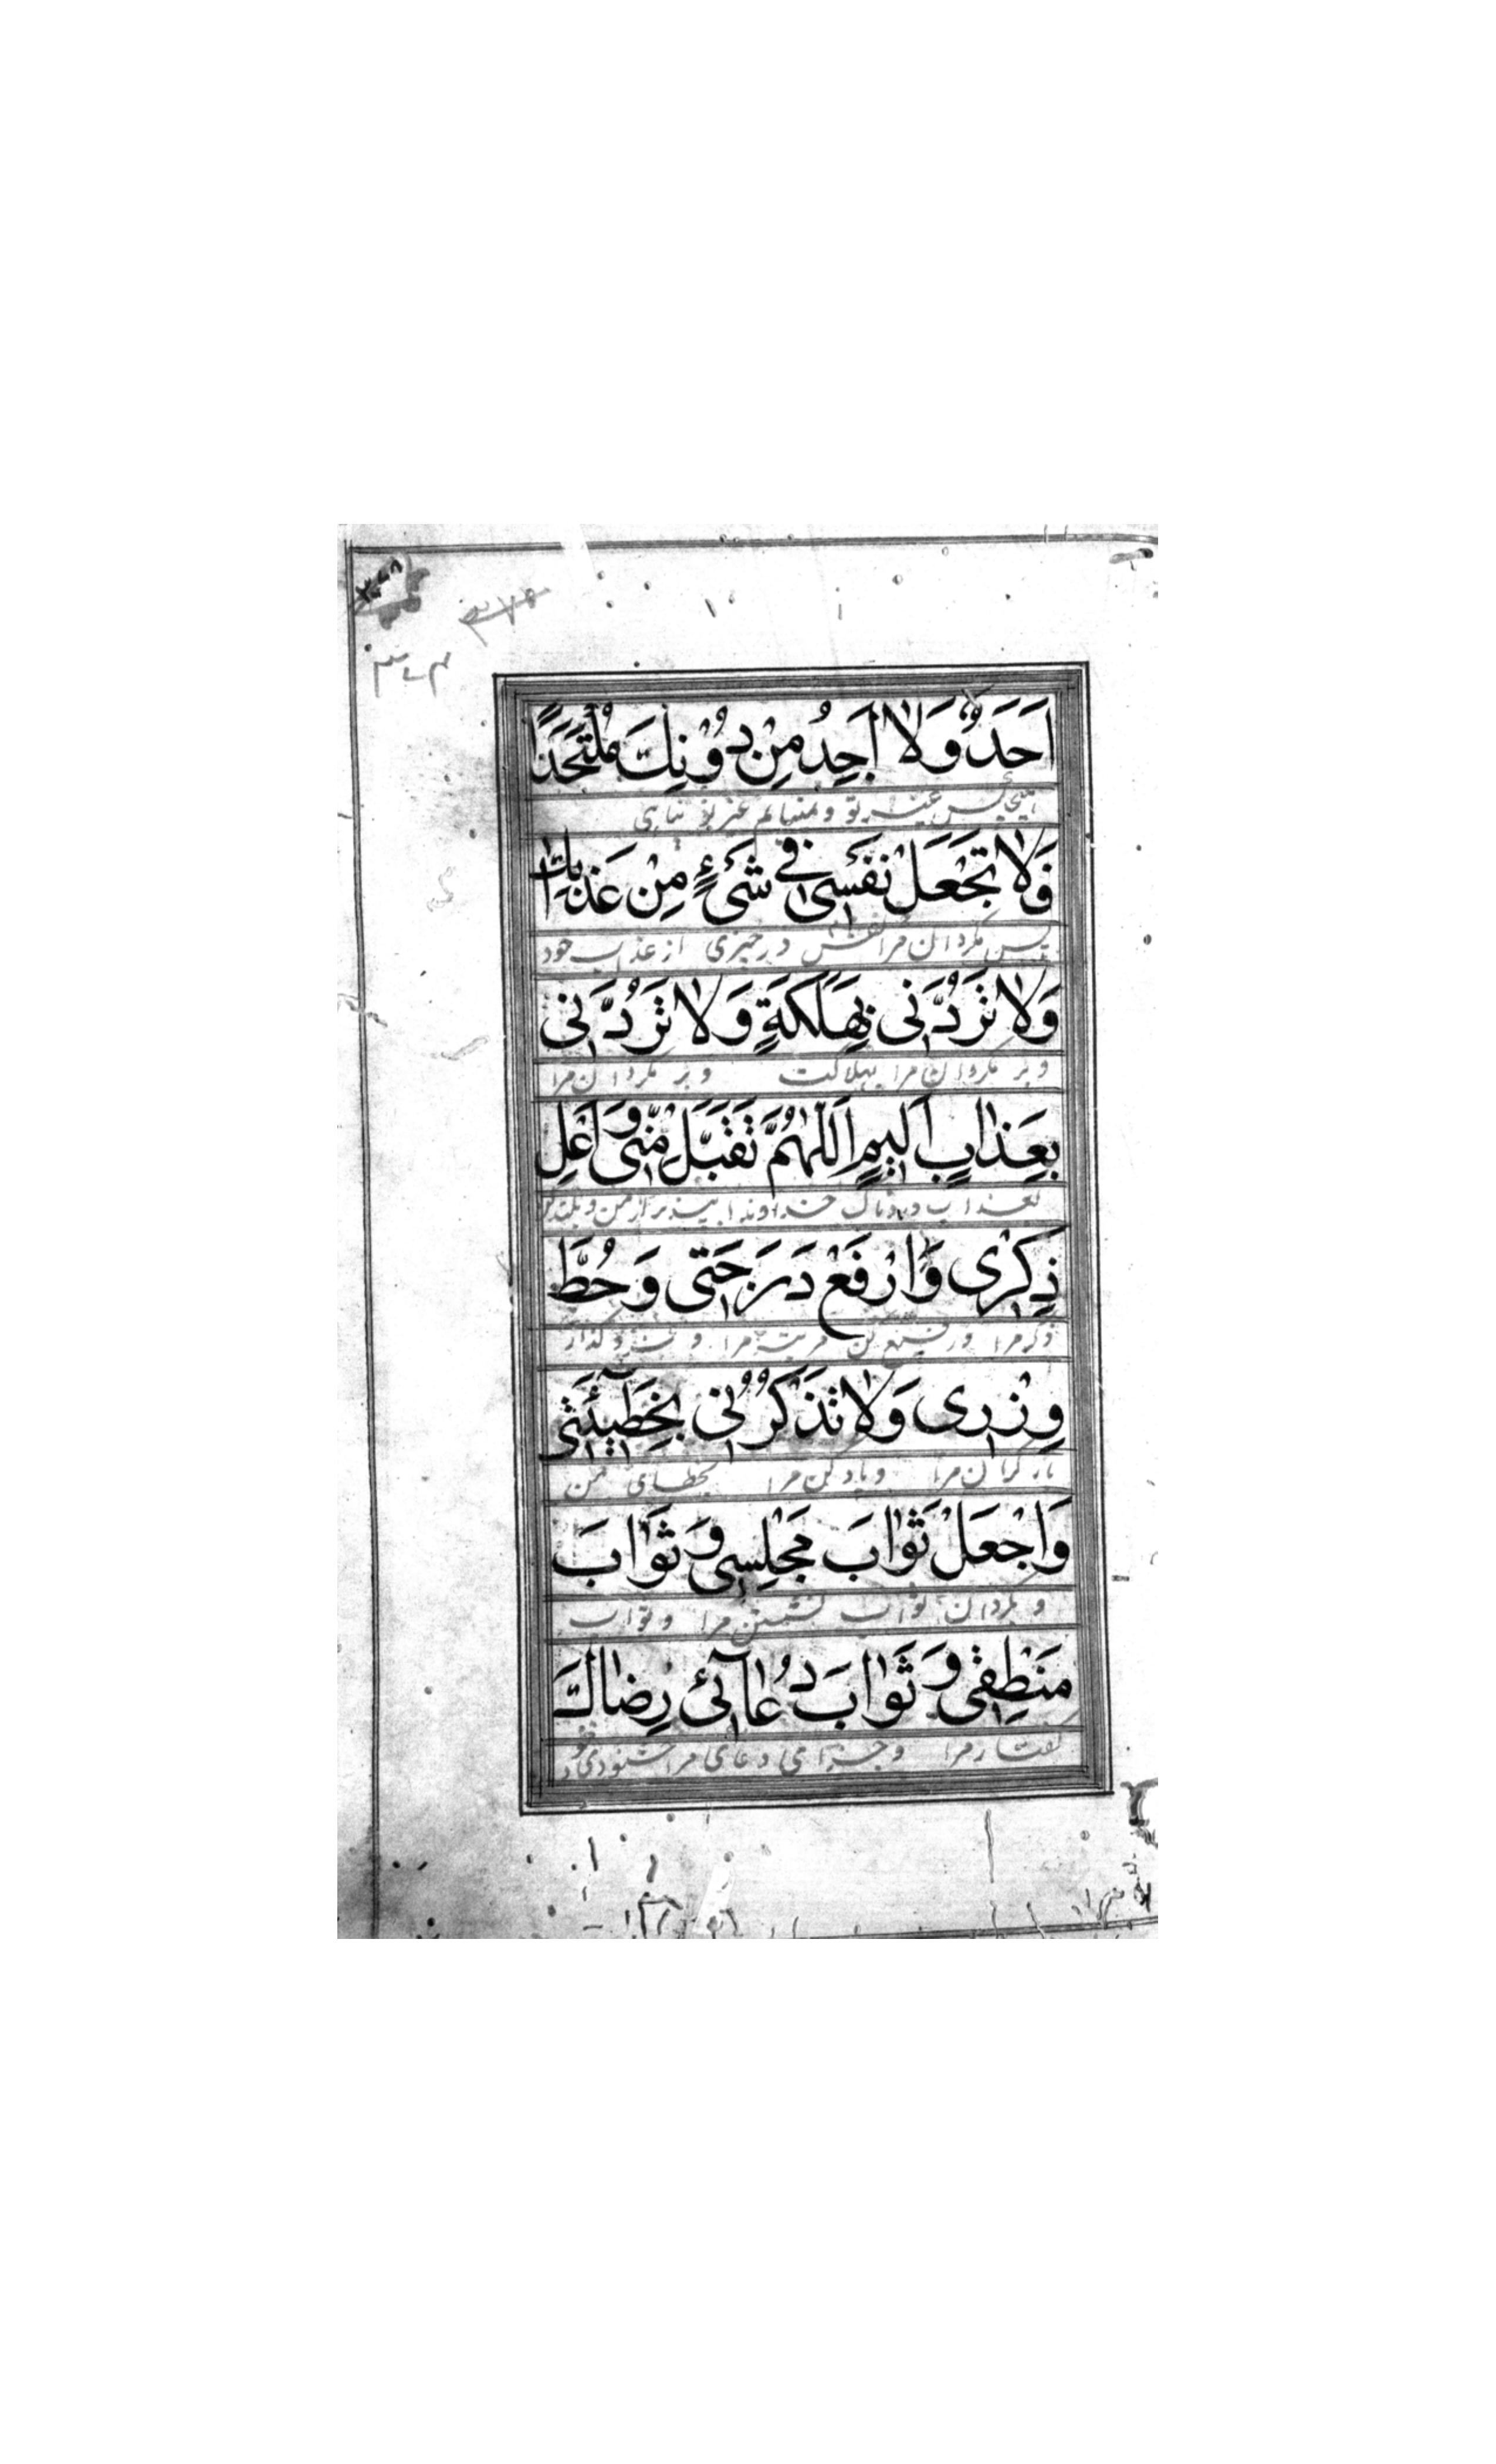 اَحَدٌ وَلَا اَجِدُ مِنْ دُوْنِكَ مُلْتَحَدًا
هیچکس غیر تو و غیر تو پناهی
فَلَا تَجْعَلْ نَفْسِی فِی شَیْءٍ مِنْ عَذَابِكَ
پس مگردان مرا نفس در چیزی از عذاب خود
وَلَا تَرُدَّنِی بِهَلَكَةٍ وَلَا تَرُدَّنِی
و بر مگردان مرا بهلاکت و بر مگردان مرا
بِعَذَابٍ اَلِیمٍ اَللّٰهُمَّ تَقَبَّلْ مِنِّی وَاَعْلِ
بعذاب دردناک خداوندا بپذیر از من و بلند کن
ذِكْرِی وَارْفَعْ دَرَجَتِی وَحُطَّ
ذکر مرا و رفیع کن مرتبه مرا و
وِزْرِی وَلَا تَذْكُرْنِی بِخَطِیْٓئَتِی
بار گران مرا و یاد کن مرا بخطای من
وَاجْعَلْ ثَوَابَ مَجْلِسِی وَثَوَابَ
و بگردان ثواب نشستن مرا و ثواب
مَنْطِقِی وَثَوَابَ دُعَآئِی رِضَاكَ
گفتار مرا و جزای دعای مرا خشنودی خود